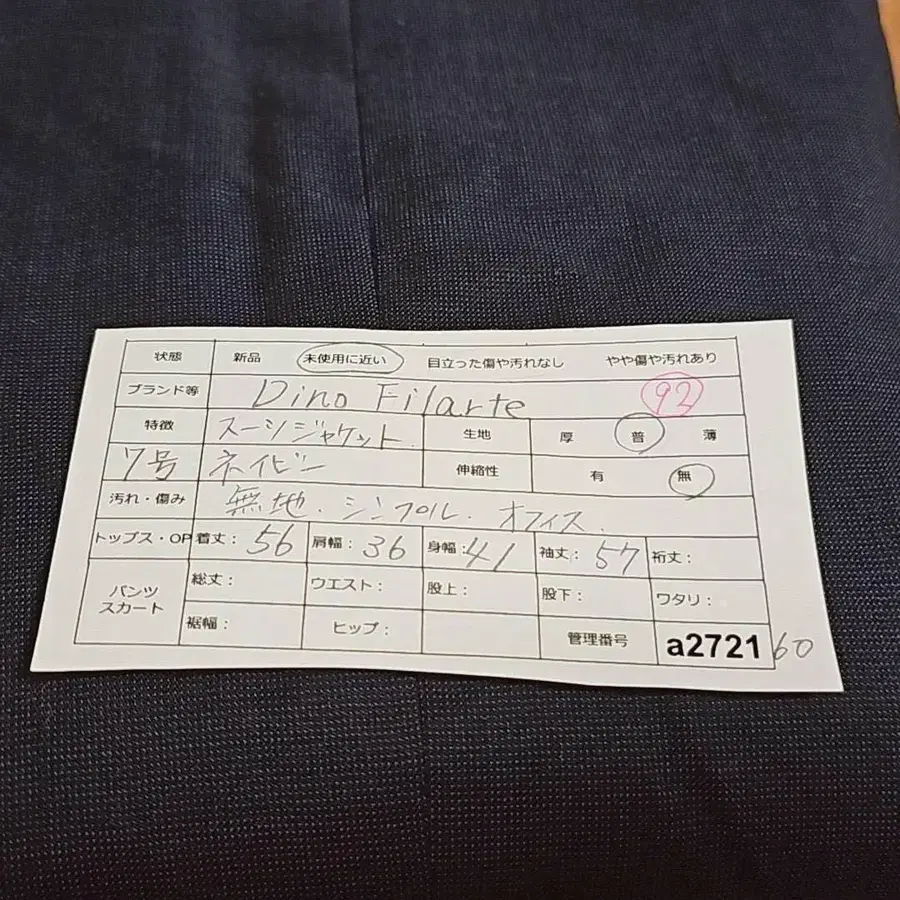 状態 新品 未使用に近い 目立った傷や汚れなし やや傷や汚れあり
ブランド等 Dino Filarte 92
特徴 スーツジャケット 生地 厚 普 薄
7号 ネイビー 伸縮性 有 無
汚れ・傷み 無地.シンプル.オフィス.
トップス・OP 着丈:56 肩幅:36 身幅:41 袖丈:57 裄丈:
パンツ スカート 総丈: ウエスト: 股上: 股下: ワタリ:
裾幅: ヒップ: 管理番号 a2721 60